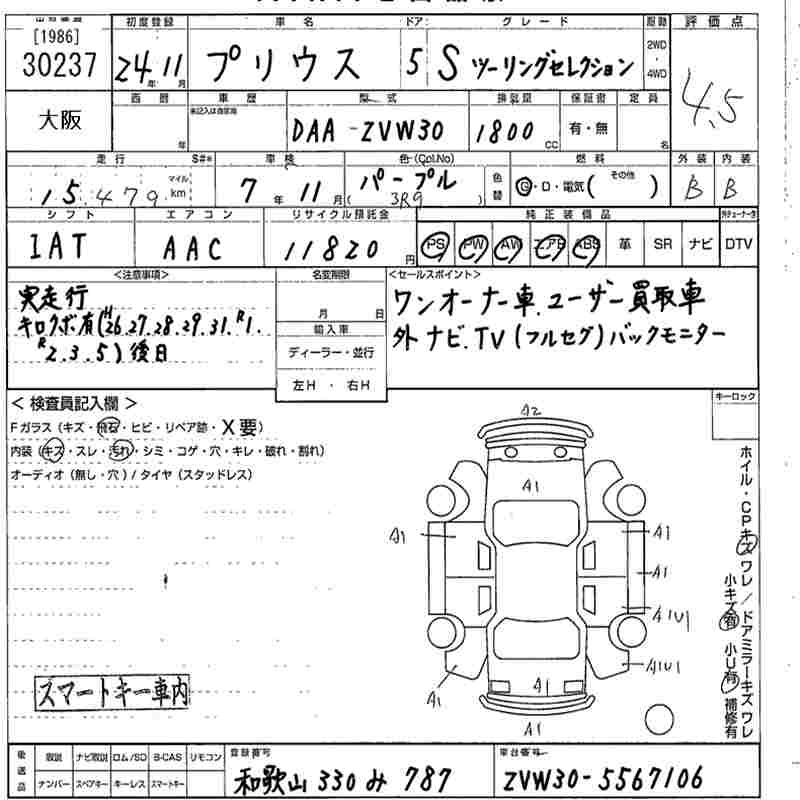 初度登録 車名 ドア グレード 駆動 評価点
[1986]
30237 24年11月 プリウス 5 S ツーリングセレクション 2WD・4WD 4.5
大阪 西暦 年 車歴 型式 排気量 保証書 定員
未記入は自家用 DAA-ZVW30 1800cc 有・無 名
走行 S#* 車検 色(Col.No) 燃料 外装 内装
15,479 マイル km 7年11月 パープル 3R9 色替 G・ロ・電気( その他 ) B B
シフト エアコン リサイクル預託金 純正装備品
IAT AAC 11820円 PS PW AW エアB ABS 革 SR ナビ DTV
<注意事項> 名変期限 <セールスポイント>
実走行 月 日 ワンオーナー車.ユーザー買取車
キロクボ有(H26.27.28.29.31.R1. 輸入車 外ナビ.TV(フルセグ)バックモニター
R2.3.5)後日 ディーラー・並行
左H・右H
<検査員記入欄> キーロック
Fガラス(キズ・飛石・ヒビ・リペア跡・X要)
内装(キズ・スレ・汚れ・シミ・コゲ・穴・キレ・破れ・割れ)
オーディオ(無し・穴)/タイヤ(スタッドレス)
A2
A1
A1 A1
A1
A1U1
A1 A1 A1U1
A1
ホイル・CPキズ ワレ/ドアミラーキズ ワレ
小キズ有 小U有 補修有
スマートキー車内
後送品 取説 ナビ取説 ロム/SD B-CAS リモコン 登録番号 車台番号
ナンバー スペアキー キーレス スマートキー 和歌山 330 み 787 ZVW30-5567106